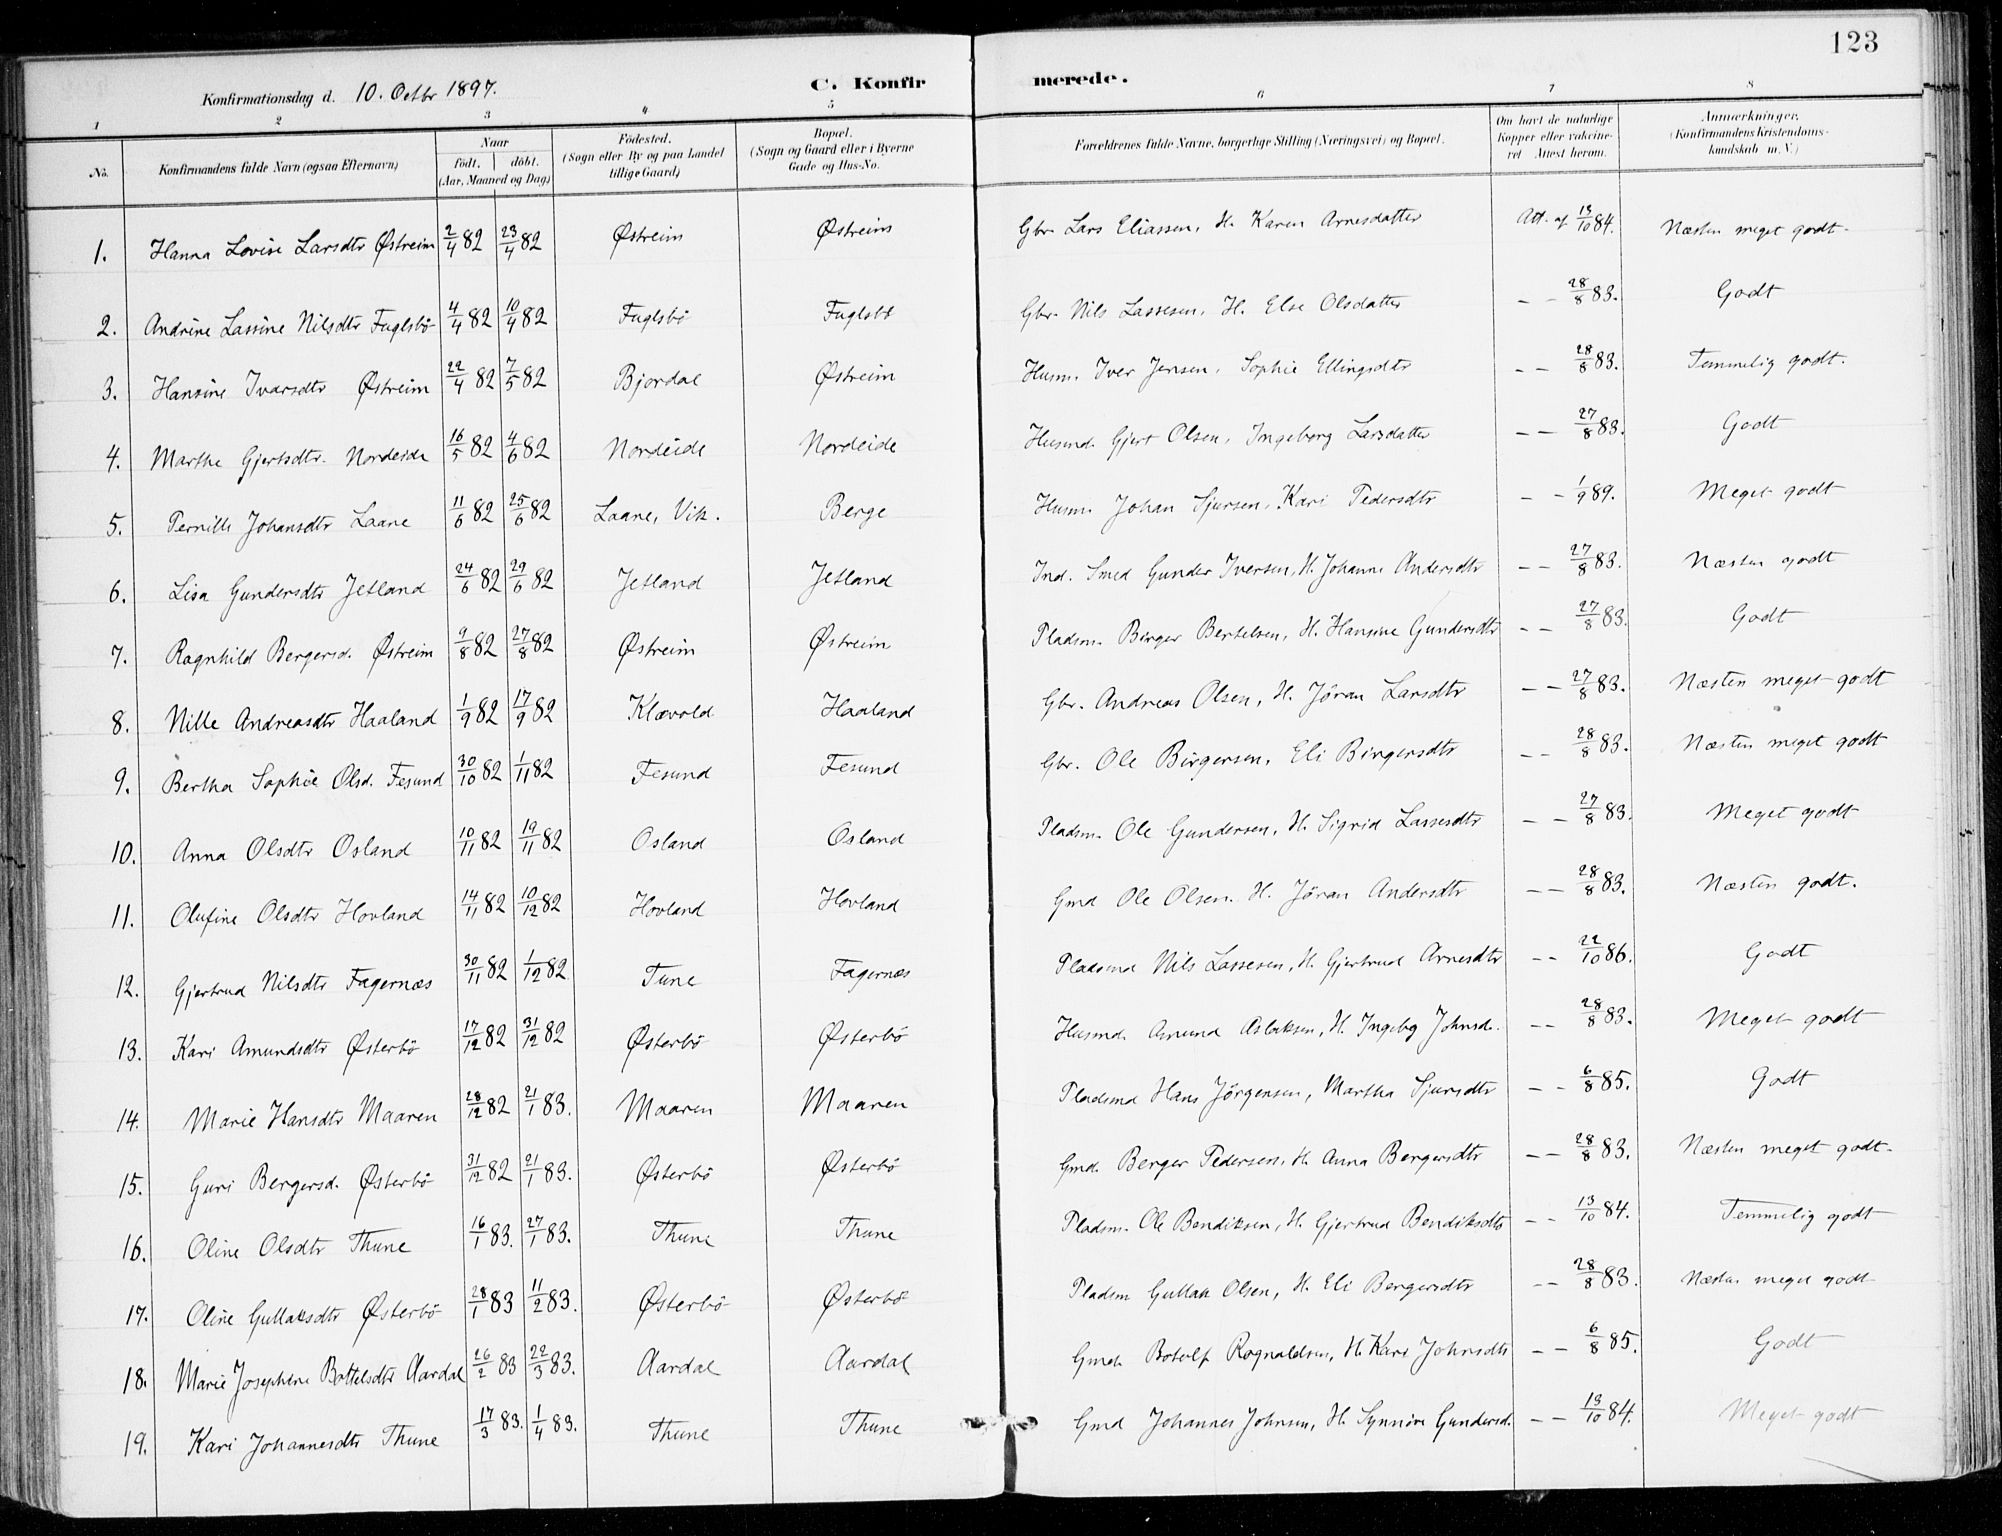 123
Konfirmationsdag d. 10. Octbr 1897. C. Konfirmerede.
1 2 3 4 5 6 7 8
No. Konfirmandens fulde Navn (ogsaa Efternavn) Naar födt. döbt. (Aar, Maaned og Dag) Födested. (Sogn eller By og paa Landet tillige Gaard) Bopæl. (Sogn og Gaard eller i Byerne Gade og Hus-No. Forældrenes fulde Navne, borgerlige Stilling (Næringsvei) og Bopæl. Om havt de naturlige Kopper eller vakcineret Attest herom. Anmærkninger, (Konfirmandens Kristendomskundskab m.V.)
1. Hanna Lovise Larsdtr Østreim 2/4 82 23/4 82 Østreim Østreim Gbr. Lars Eliassen, H. Karen Arnesdatter Att. af 13/10 84. Næsten meget godt.
2. Andrine Lassine Nilsdtr Fuglsbö 4/4 82 10/4 82 Fuglsbö Fuglsbö Gbr. Nils Lassesen, H. Else Olsdatter - - 28/8 83. Godt
3. Hansine Ivarsdtr Østreim 22/4 82 7/5 82 Bjordal Østreim Husm. Iver Jensen, Sophie Ellingsdtr - - 28/8 83. Temmelig godt.
4. Marthe Gjertsdtr. Nordeide 16/5 82 4/6 82 Nordeide Nordeide Husmd. Gjert Olsen, Ingeborg Larsdatter - - 27/8 83. Godt
5. Pernille Johansdtr Laane 11/6 82 25/6 82 Laane, Vik. Berge Husm. Johan Sjursen, Kari Pedersdtr - - 1/9 89. Meget godt
6. Lisa Gundersdtr Jetland 24/6 82 29/6 82 Jetland Jetland Ind. Smed Gunder Iversen, H. Johanne Andersdtr - - 27/8 83. Næsten godt
7. Ragnhild Bergersd. Østreim 9/8 82 27/8 82 Østreim Østreim Pladsm. Birger Bertelsen, H. Hansine Gundersdtr - - 27/8 83. Godt
8. Nille Andreasdtr Haaland 1/9 82 17/9 82 Klævold Haaland Gbr. Andreas Olsen, H. Jöran Larsdtr - - 27/8 83. Næsten meget godt
9. Bertha Sophie Olsd. Fesund 30/10 82 1/11 82 Fesund Fesund Gbr. Ole Birgersen, Eli Birgersdtr - - 28/8 83. Næsten meget godt
10. Anna Olsdtr Osland 10/11 82 19/11 82 Osland Osland Pladsm. Ole Gundersen, H. Sigrid Lassesdtr - - 27/8 83. Meget godt
11. Olufine Olsdtr Hovland 14/11 82 10/12 82 Hovland Hovland Gmd Ole Olsen. H. Jöran Andersdtr - - 28/8 83. Næsten godt.
12. Gjertrud Nilsdtr Fagernæs 30/11 82 1/12 82 Tune Fagernæs Pladsmd Nils Lassesen, H. Gjertrud Arnesdtr - - 22/10 86. Godt
13. Kari Amundsdtr Østerbö 17/12 82 31/12 82 Østerbö Østerbö Husmd. Amund Aslaksen, H. Ingebg Johnsd. - - 28/8 83. Meget godt
14. Marie Hansdtr Maaren 28/12 82 21/1 83. Maaren Maaren Pladsmd Hans Jörgensen, Martha Sjursdtr - - 6/8 85. Godt
15. Guri Bergersd. Østerbö 31/12 82 21/1 83. Østerbö Østerbö Gmd. Berger Pedersen, H. Anna Bergersdtr - - 28/8 83. Næsten meget godt.
16. Oline Olsdtr Thune 16/1 83. 27/1 83. Thune Thune Pladsm. Ole Bendiksen, H. Gjertrud Bendiksdtr - - 13/10 84. Temmelig godt
17. Oline Gullaksdtr Østerbö 28/1 83 11/2 83. Østerbö Østerbö Pladsm Gullak Olsen, H. Eli Bergersdtr - - 28/8 83. Næsten meget godt
18. Marie Josephine Bottelsdtr Aardal 26/2 83 22/3 83. Aardal Aardal Gmd. Botolf Rognaldsen, H. Kari Johnsdtr - - 6/8 85. Godt
19. Kari Johannesdtr Thune 17/3 83. 1/4 83. Thune Thune Gmd Johannes Johnsen, H. Synnöve Gundersd. - - 13/10 84. Meget godt